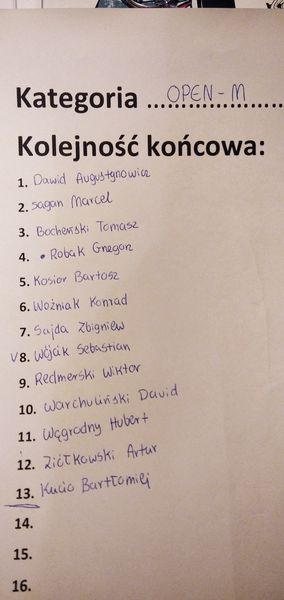 Kategoria ......OPEN-M......
Kolejność końcowa:
1. Dawid Augustynowicz
2. Sagan Marcel
3. Bocheński Tomasz
4. • Robak Gnegorz
5. Kosior Bartosz
6. Woźniak Konrad
7. Sajda Zbigniew
V8. Wójcik Sebastian
9. Redmerski Wiktor
10. Warchuliński David
11. Węgrodny Hubert
12. Ziółkowski Artur
13. Kucio Bartłomiej
14.
15.
16.